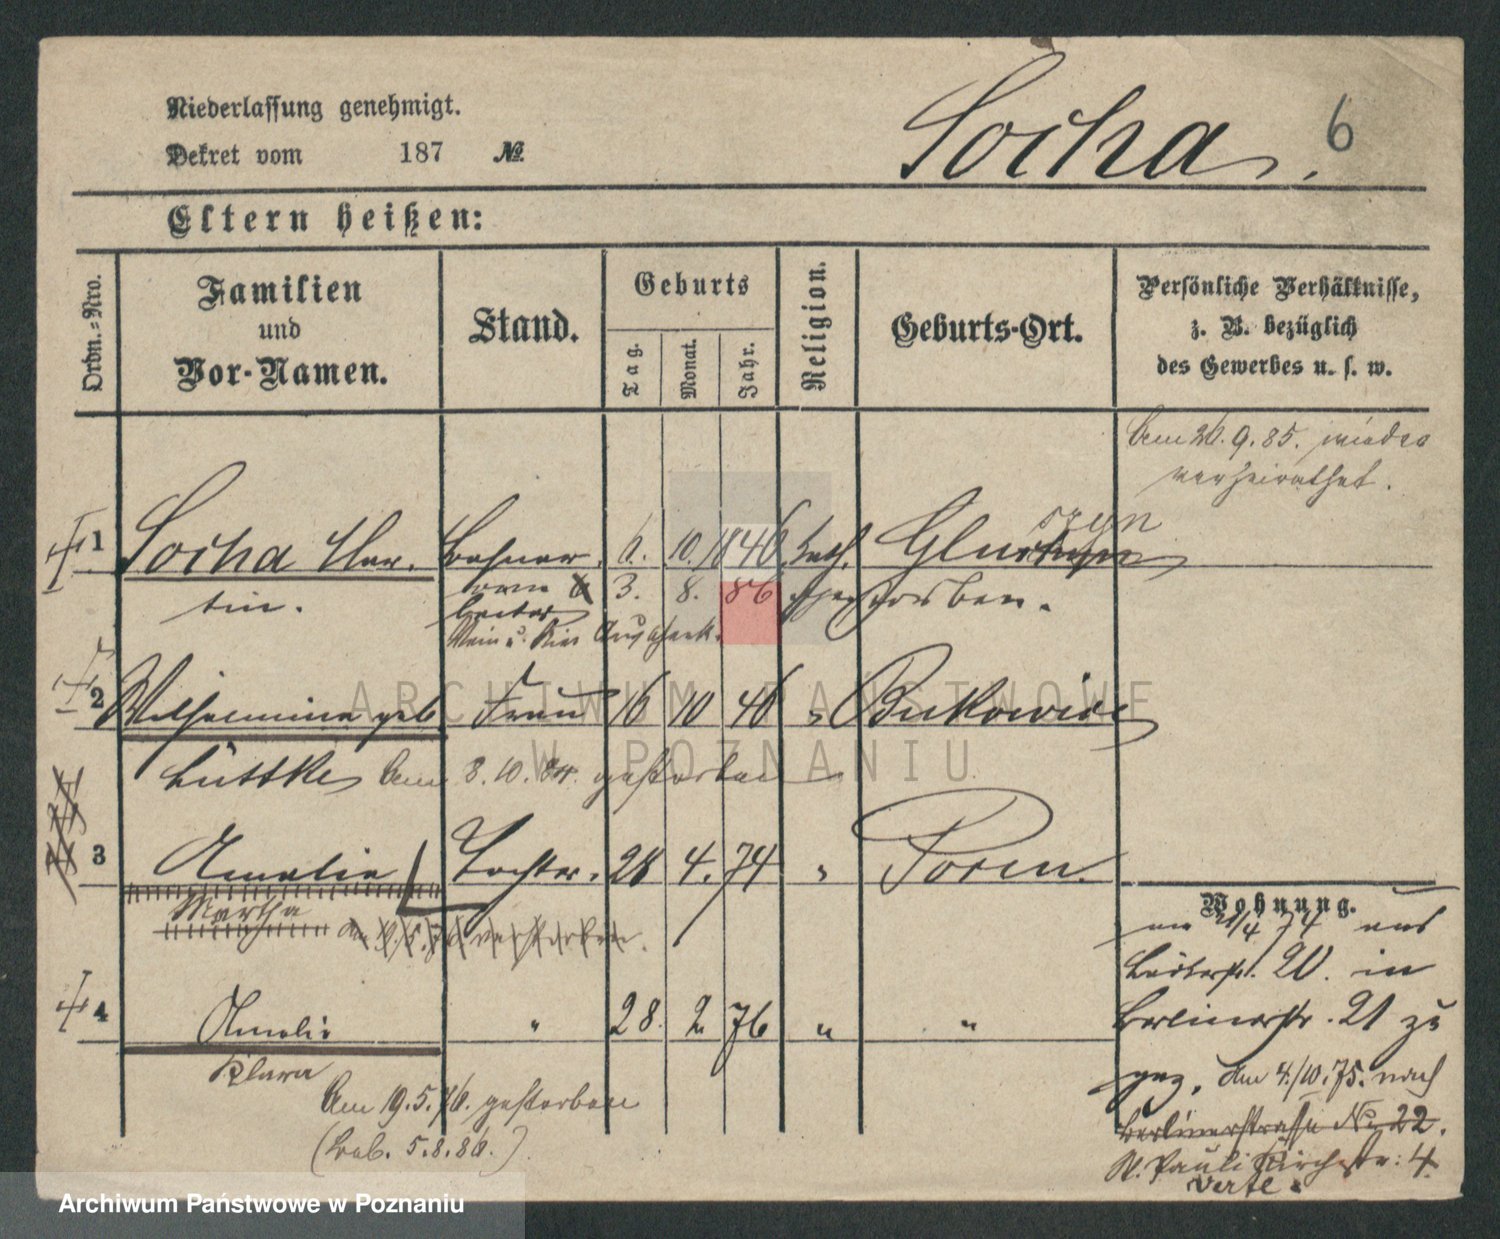 Niederlassung genehmigt.
Dekret vom 187 №
Socha. 6
Eltern heißen:
Ordn.-Nro.
Familien
und
Vor-Namen.
Stand.
Geburts
Tag.
Monat.
Jahr.
Religion.
Geburts-Ort.
Persönliche Verhältnisse,
z. B. bezüglich
des Gewerbes u. s. w.
Am 26.9.85. wieder
verheirathet.
1 Socha Mar. 6. 10. 1846. kath.
tin. 3. 8. 86 gestorben.
2 Wilhelmine geb Frau 16 10 46 " Bukowiec
Lüttke Am 8.10.84. gestorben
3 Amalie Tochter. 28 4. 74 " Posen.
Martha verstorben.
4 Amalie " 28. 2. 76 " "
Klara
Am 19.5.76. gestorben
5.8.86.)
Wohnung.
21/4 74 aus
20. in
Berlinerstr. 21 zu
gez. Am 4./10.75. nach
Berlinerstraße No 22.
St. Pauli Kirchstr: 4.
Verte.
ARCHIWUM PAŃSTWOWE
W POZNANIU
Archiwum Państwowe w Poznaniu